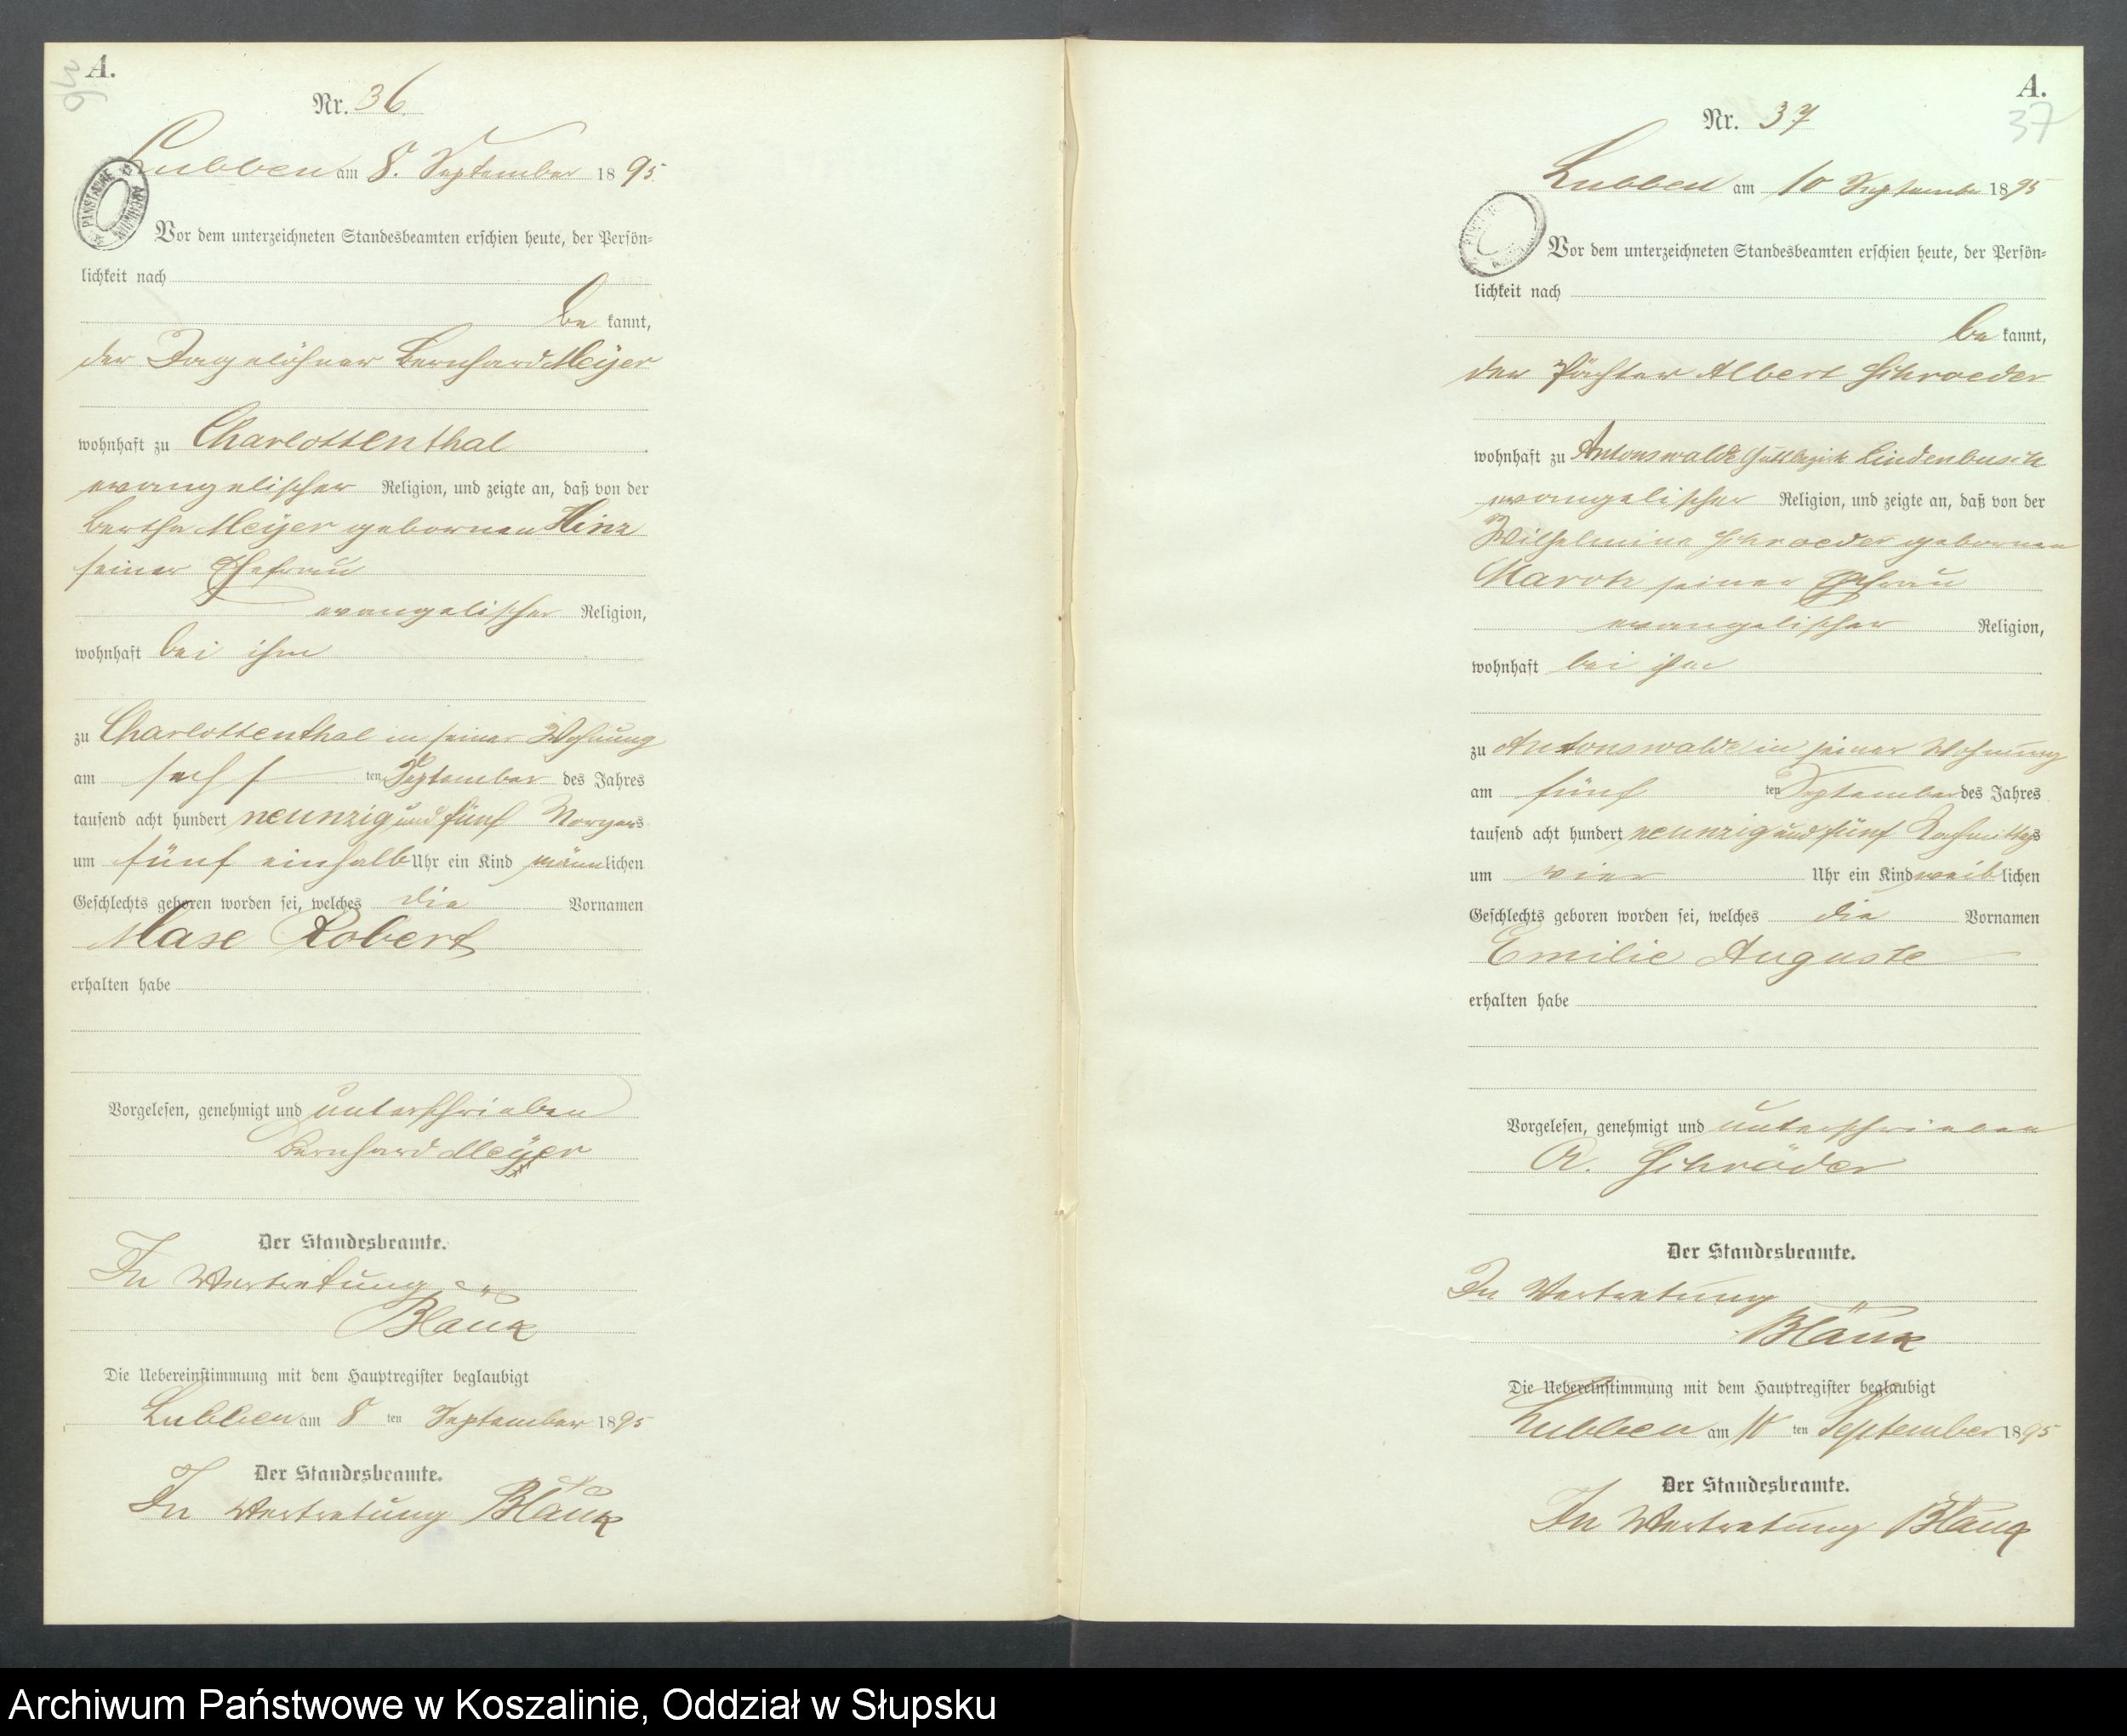 A.
36
Nr. 36.
Lubben am 8. September 1895
PAŃSTWOWE ARCHIWUM
Vor dem unterzeichneten Standesbeamten erschien heute, der Persön-
lichkeit nach
be kannt,
der Tagelöhner Bernhard Meÿer
wohnhaft zu Charlottenthal
evangelischer Religion, und zeigte an, daß von der
Bertha Meÿer gebornen Hinz
seiner Ehefrau
evangelischer Religion,
wohnhaft bei ihm
zu Charlottenthal in seiner Wohnung
am sechs ten September des Jahres
tausend acht hundert neunzig und fünf Morgens
um fünf einhalb Uhr ein Kind männlichen
Geschlechts geboren worden sei, welches die Vornamen
Max Robert
erhalten habe
Vorgelesen, genehmigt und unterschrieben
Bernhard Meÿer
Der Standesbeamte.
In Vertretung
Bläuk
Die Uebereinstimmung mit dem Hauptregister beglaubigt
Lubben am 8 ten September 1895
Der Standesbeamte.
In Vertretung Bläuk
A.
37
Nr. 37
Lubben am 10 September 1895
Vor dem unterzeichneten Standesbeamten erschien heute, der Persön-
lichkeit nach
be kannt,
der Pächter Albert Schroeder
wohnhaft zu Antonswalde Gutsbezirk Lindenbusch
evangelischer Religion, und zeigte an, daß von der
Wilhelmine Schroeder gebornen
Marotz seiner Ehefrau
evangelischer Religion,
wohnhaft bei ihm
zu Antonswalde in seiner Wohnung
am fünf ten September des Jahres
tausend acht hundert neunzig und fünf Nachmittags
um vier Uhr ein Kind weiblichen
Geschlechts geboren worden sei, welches die Vornamen
Emilie Auguste
erhalten habe
Vorgelesen, genehmigt und unterschrieben
A. Schröder
Der Standesbeamte.
In Vertretung
Bläuk
Die Uebereinstimmung mit dem Hauptregister beglaubigt
Lubben am 10 ten September 1895
Der Standesbeamte.
In Vertretung Bläuk
Archiwum Państwowe w Koszalinie, Oddział w Słupsku